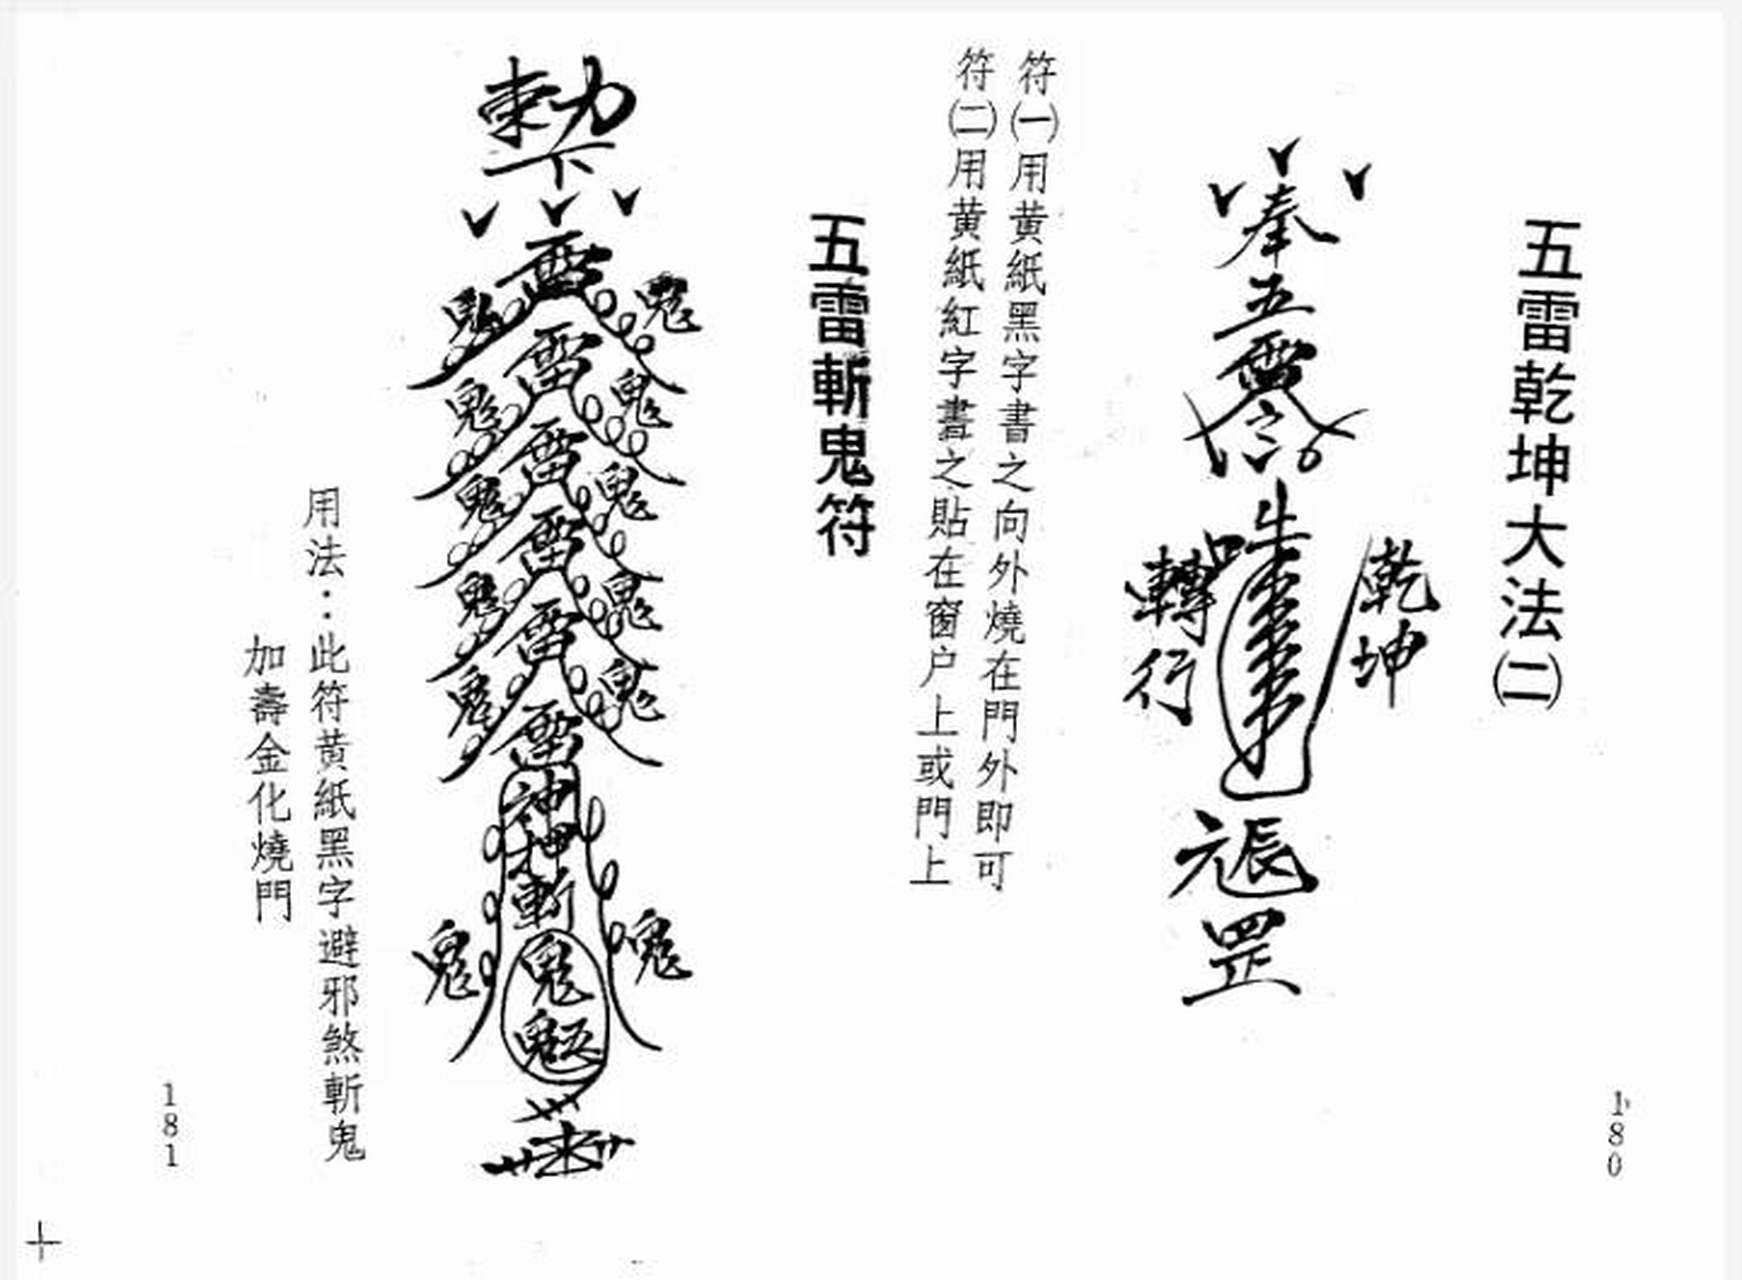 五雷乾坤大法㈡
奉
五
雷
乾坤
轉行
罡
符㈠用黃紙黑字書之向外燒在門外即可
符㈡用黃紙紅字書之貼在窗户上或門上
180
五雷斬鬼符
勅
下
雷
雷
雷
雷
雷
雷
神
斬
鬼
鬼
鬼
鬼
鬼
鬼
鬼
鬼
鬼
鬼
鬼
鬼
鬼
用法：此符黃紙黑字避邪煞斬鬼
加壽金化燒門
181